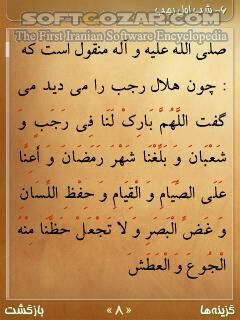 SOFTGOZAR.COM
The First Iranian Software Encyclopedia
۶- شب اول رجب
صلی الله علیه و آله منقول است که
: چون هلال رجب را می دید می
گفت اللَّهُمَّ بَارِكْ لَنَا فِي رَجَبٍ وَ
شَعْبَانَ وَ بَلِّغْنَا شَهْرَ رَمَضَانَ وَ أَعِنَّا
عَلَى الصِّيَامِ وَ الْقِيَامِ وَ حِفْظِ اللِّسَانِ
وَ غَضِّ الْبَصَرِ وَ لا تَجْعَلْ حَظَّنَا مِنْهُ
الْجُوعَ وَ الْعَطَشَ
گزینه‌ها « ۸ » بازگشت